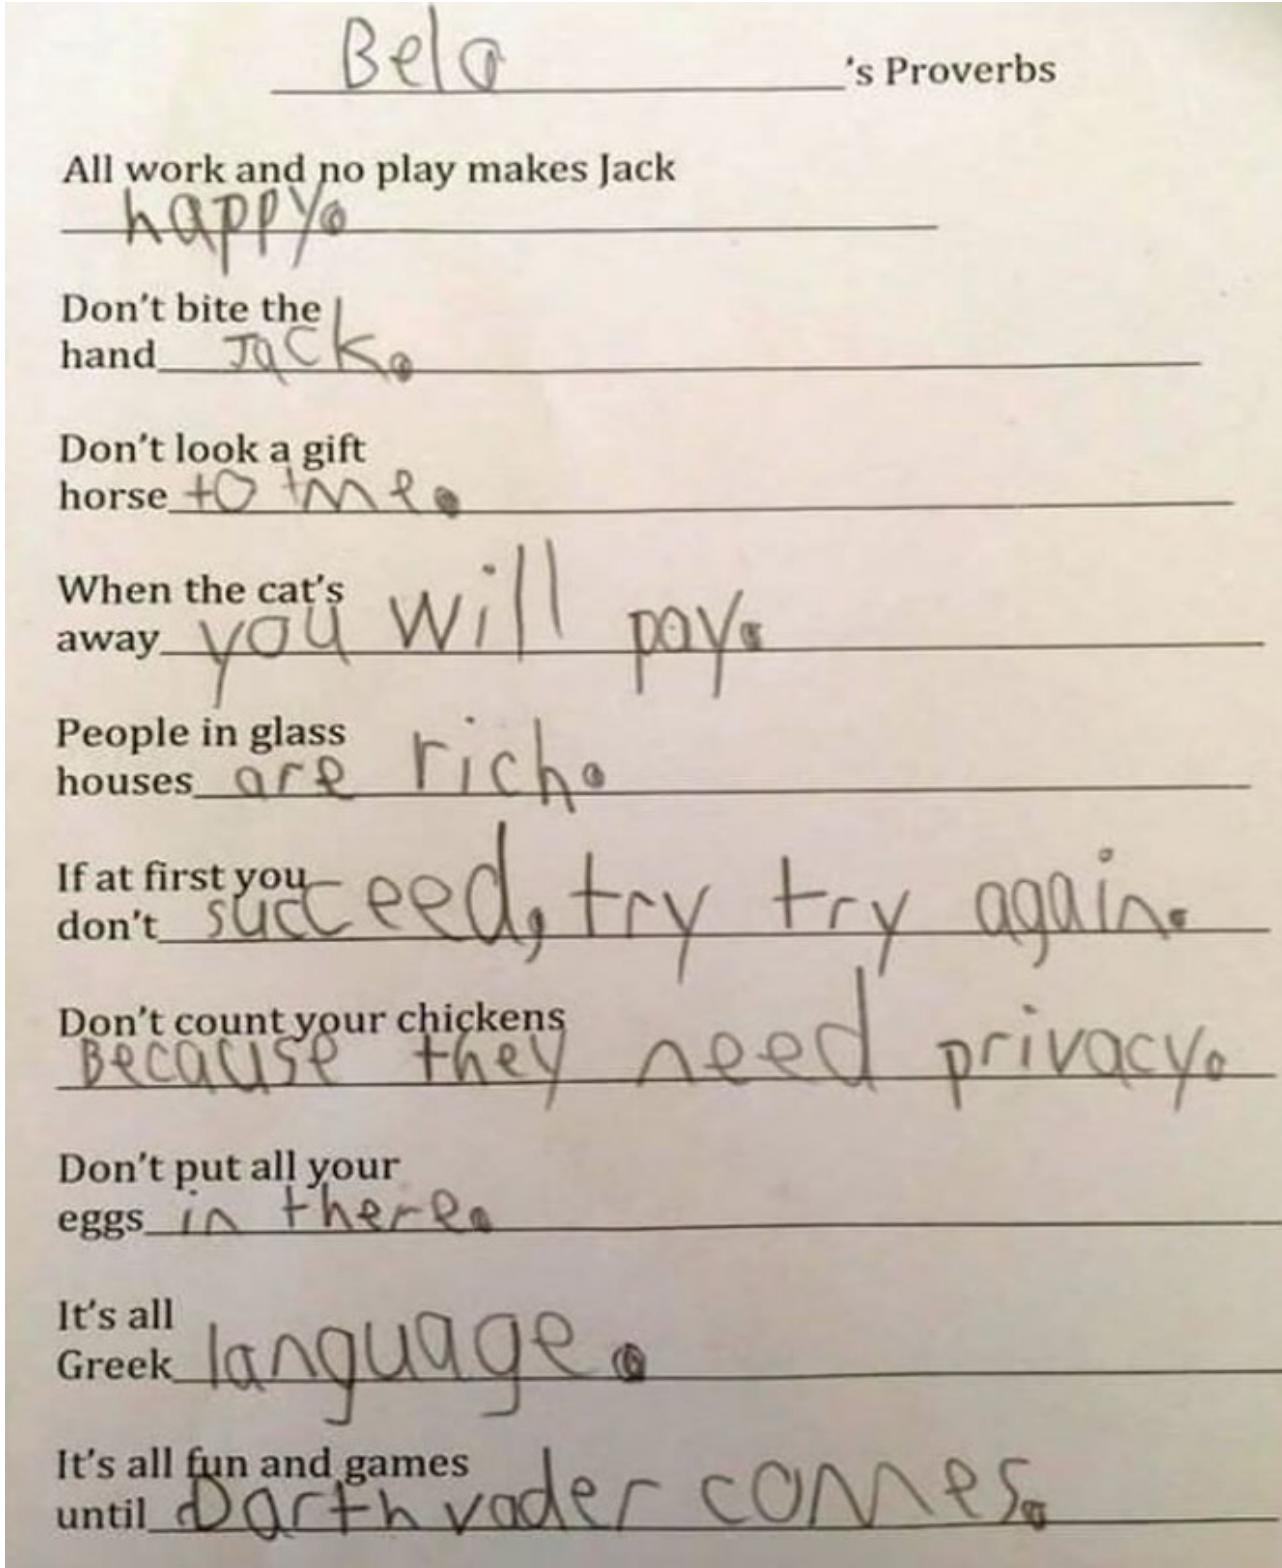 Bela's Proverbs
All work and no play makes Jack
happy.
Don't bite the
hand Jack.
Don't look a gift
horse to me.
When the cat's
away you will pay.
People in glass
houses are rich.
If at first you
don't succeed, try try again.
Don't count your chickens
Because they need privacy.
Don't put all your
eggs in there.
It's all
Greek language.
It's all fun and games
until Darth vader comes.